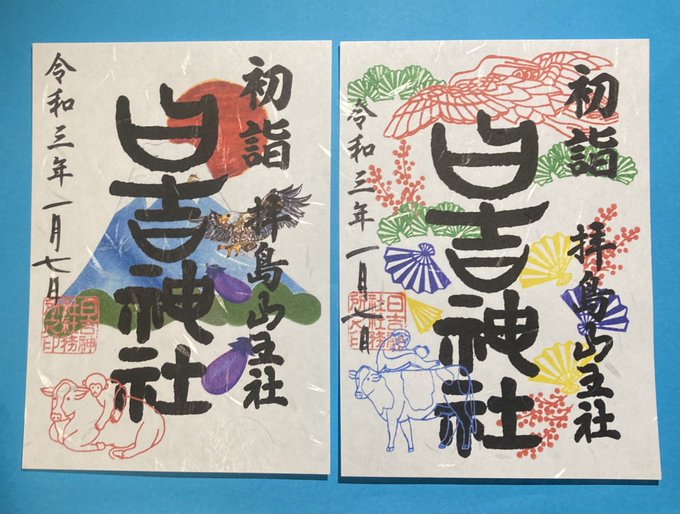 初詣
拝島山王社
日吉神社
令和三年一月七日
日吉神
社社務
所之印
初詣
拝島山王社
日吉神社
令和三年一月七日
日吉神
社社務
所之印